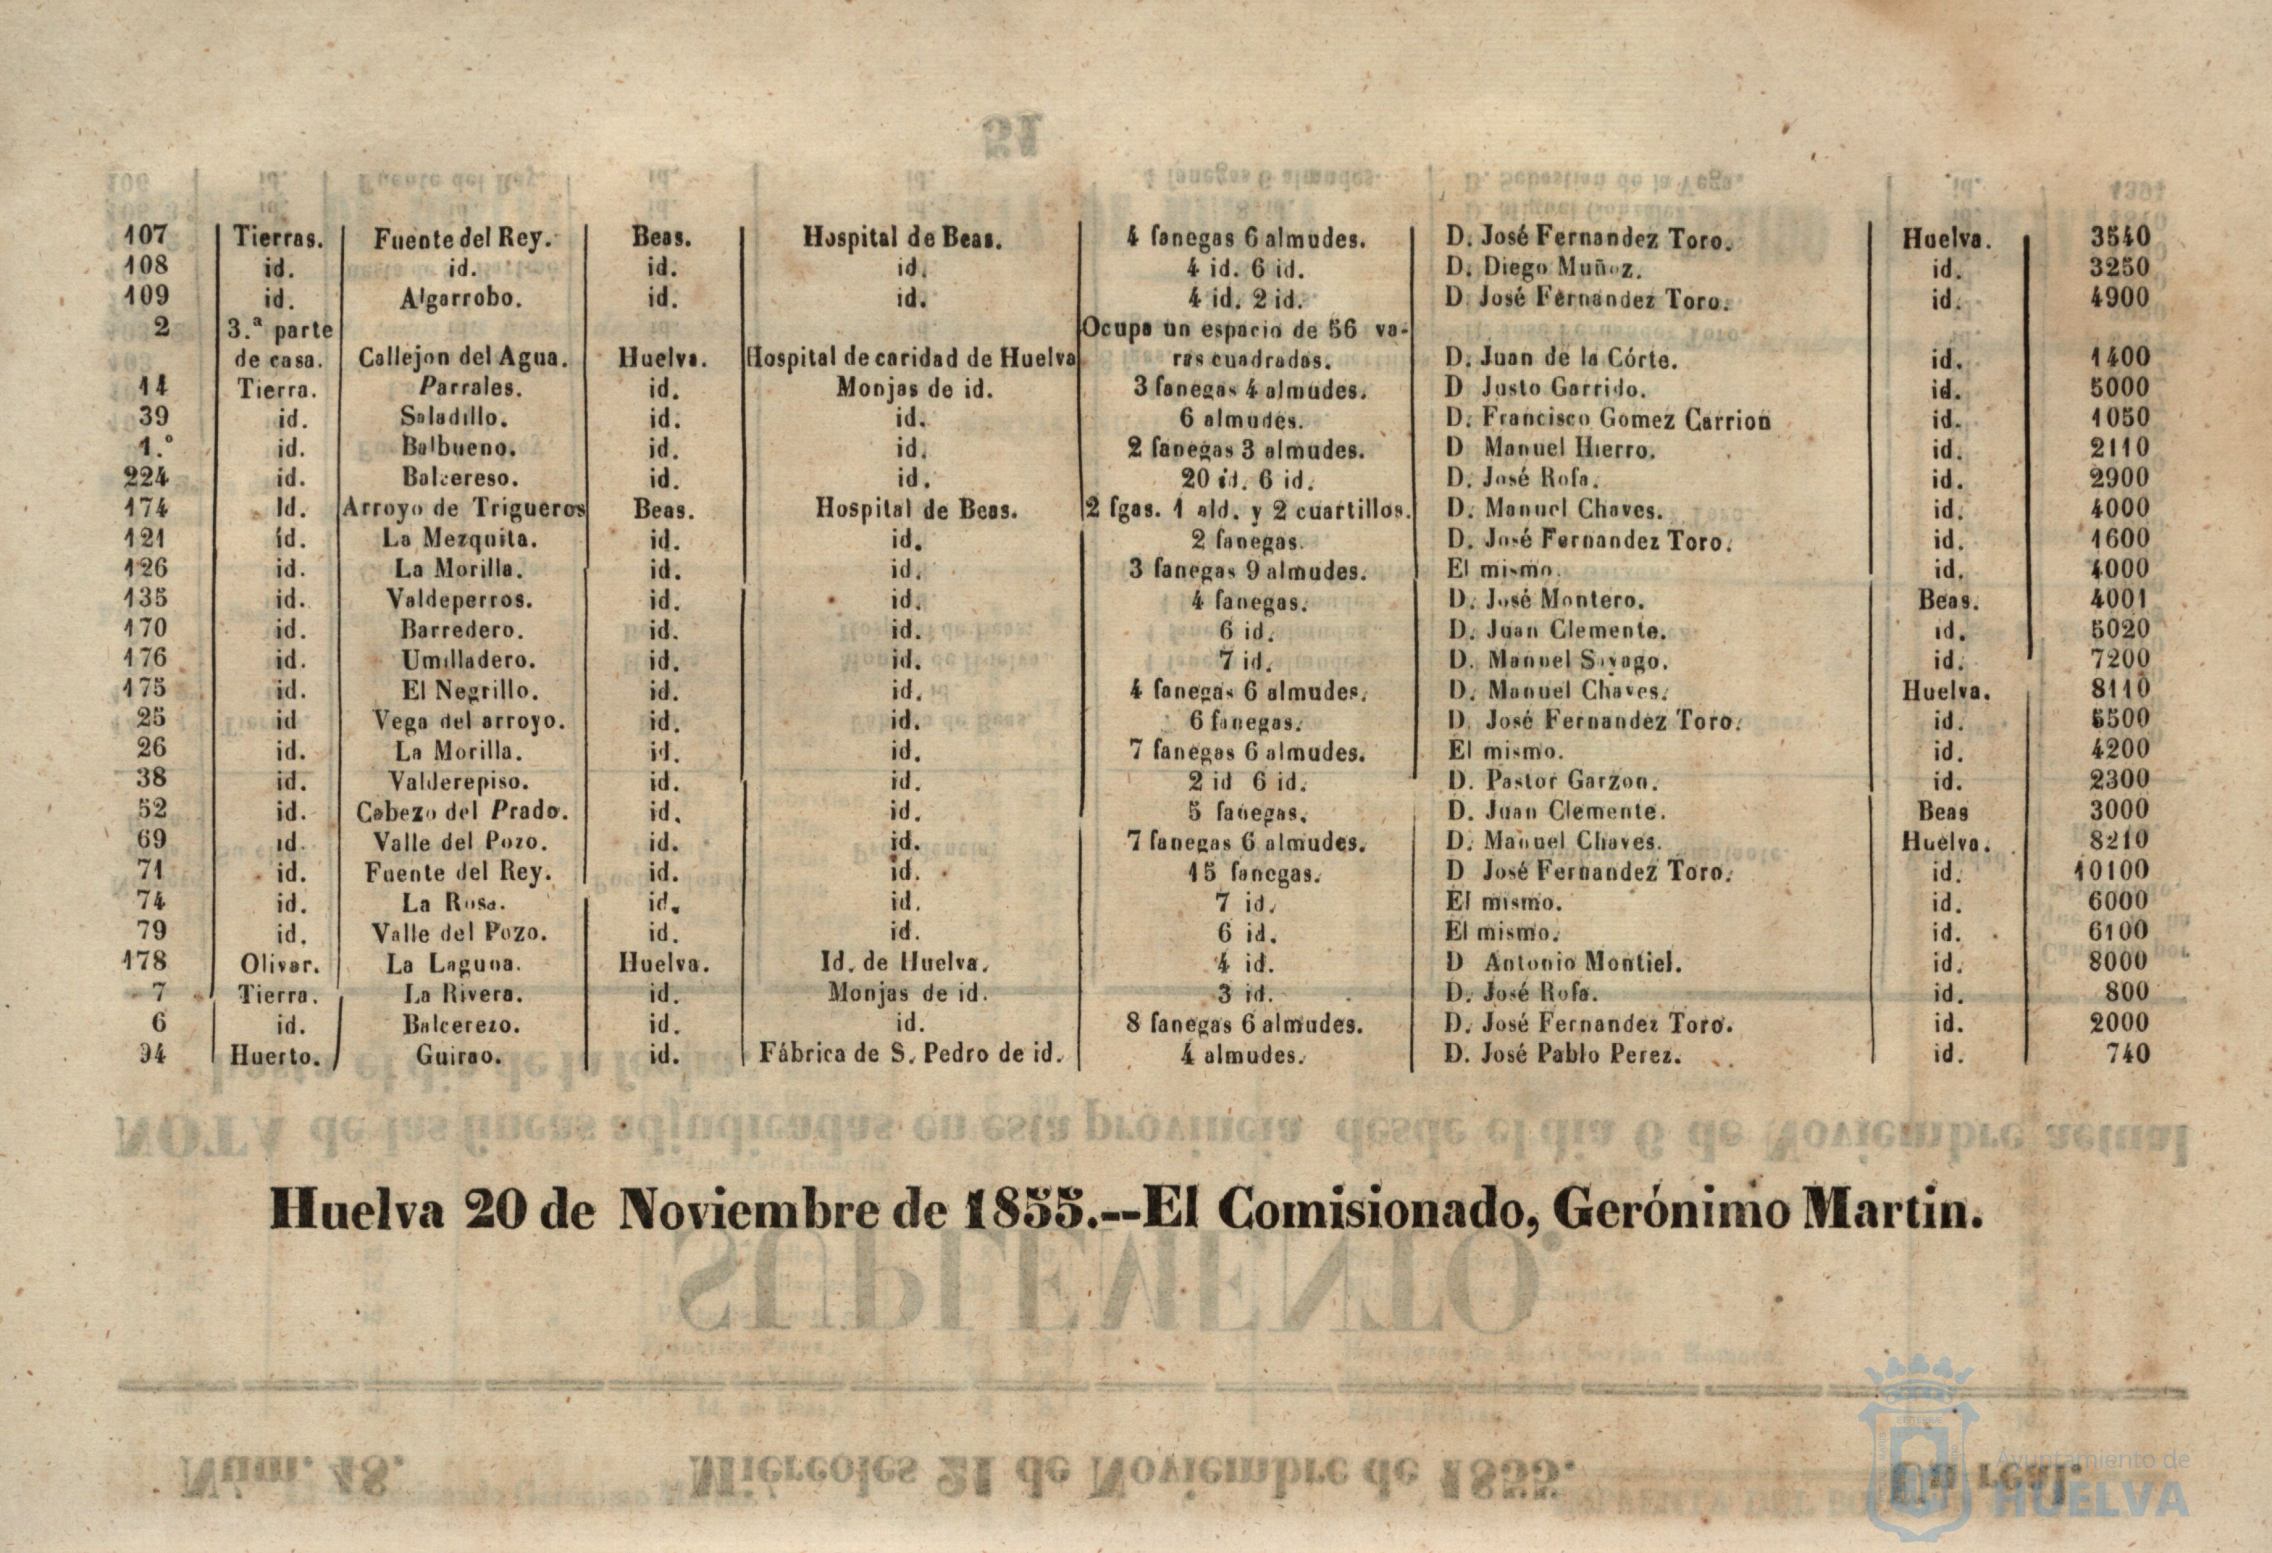 107 Tierras. Fuente del Rey. Beas. Hospital de Beas. 4 fanegas 6 almudes. D. José Fernandez Toro. Huelva. 3540
108 id. id. id. id. 4 id. 6 id. D. Diego Muñoz. id. 3250
109 id. Algarrobo. id. id. 4 id. 2 id. D. José Fernandez Toro. id. 4900
2 3.ª parte Ocupa un espacio de 56 va-
de casa. Callejon del Agua. Huelva. Hospital de caridad de Huelva ras cuadradas. D. Juan de la Córte. id. 1400
14 Tierra. Parrales. id. Monjas de id. 3 fanegas 4 almudes. D Justo Garrido. id. 5000
39 id. Saladillo. id. id. 6 almudes. D. Francisco Gomez Carrion id. 1050
1.º id. Balbueno. id. id. 2 fanegas 3 almudes. D Manuel Hierro. id. 2110
224 id. Balcereso. id. id. 20 id. 6 id. D. José Rofa. id. 2900
174 Id. Arroyo de Trigueros Beas. Hospital de Beas. 2 fgas. 1 ald. y 2 cuartillos. D. Manuel Chaves. id. 4000
121 id. La Mezquita. id. id. 2 fanegas. D. José Fernandez Toro. id. 1600
126 id. La Morilla. id. id. 3 fanegas 9 almudes. El mismo. id. 4000
135 id. Valdeperros. id. id. 4 fanegas. D. José Montero. Beas. 4001
170 id. Barredero. id. id. 6 id. D. Juan Clemente. id. 5020
176 id. Umilladero. id. id. 7 id. D. Manuel Sayago. id. 7200
175 id. El Negrillo. id. id. 4 fanegas 6 almudes. D. Manuel Chaves. Huelva. 8110
25 id Vega del arroyo. id. id. 6 fanegas. D. José Fernandez Toro. id. 5500
26 id. La Morilla. id. id. 7 fanegas 6 almudes. El mismo. id. 4200
38 id. Valderepiso. id. id. 2 id 6 id. D. Pastor Garzon. id. 2300
52 id. Cabezo del Prado. id. id. 5 fanegas. D. Juan Clemente. Beas 3000
69 id. Valle del Pozo. id. id. 7 fanegas 6 almudes. D. Manuel Chaves. Huelva. 8210
71 id. Fuente del Rey. id. id. 15 fanegas. D José Fernandez Toro. id. 10100
74 id. La Rosa. id. id. 7 id. El mismo. id. 6000
79 id. Valle del Pozo. id. id. 6 id. El mismo. id. 6100
178 Olivar. La Laguna. Huelva. Id. de Huelva. 4 id. D Antonio Montiel. id. 8000
7 Tierra. La Rivera. id. Monjas de id. 3 id. D. José Rofa. id. 800
6 id. Balcerezo. id. id. 8 fanegas 6 almudes. D. José Fernandez Toro. id. 2000
94 Huerto. Guirao. id. Fábrica de S. Pedro de id. 4 almudes. D. José Pablo Perez. id. 740
Huelva 20 de Noviembre de 1855.--El Comisionado, Gerónimo Martin.
Ayuntamiento de
HUELVA